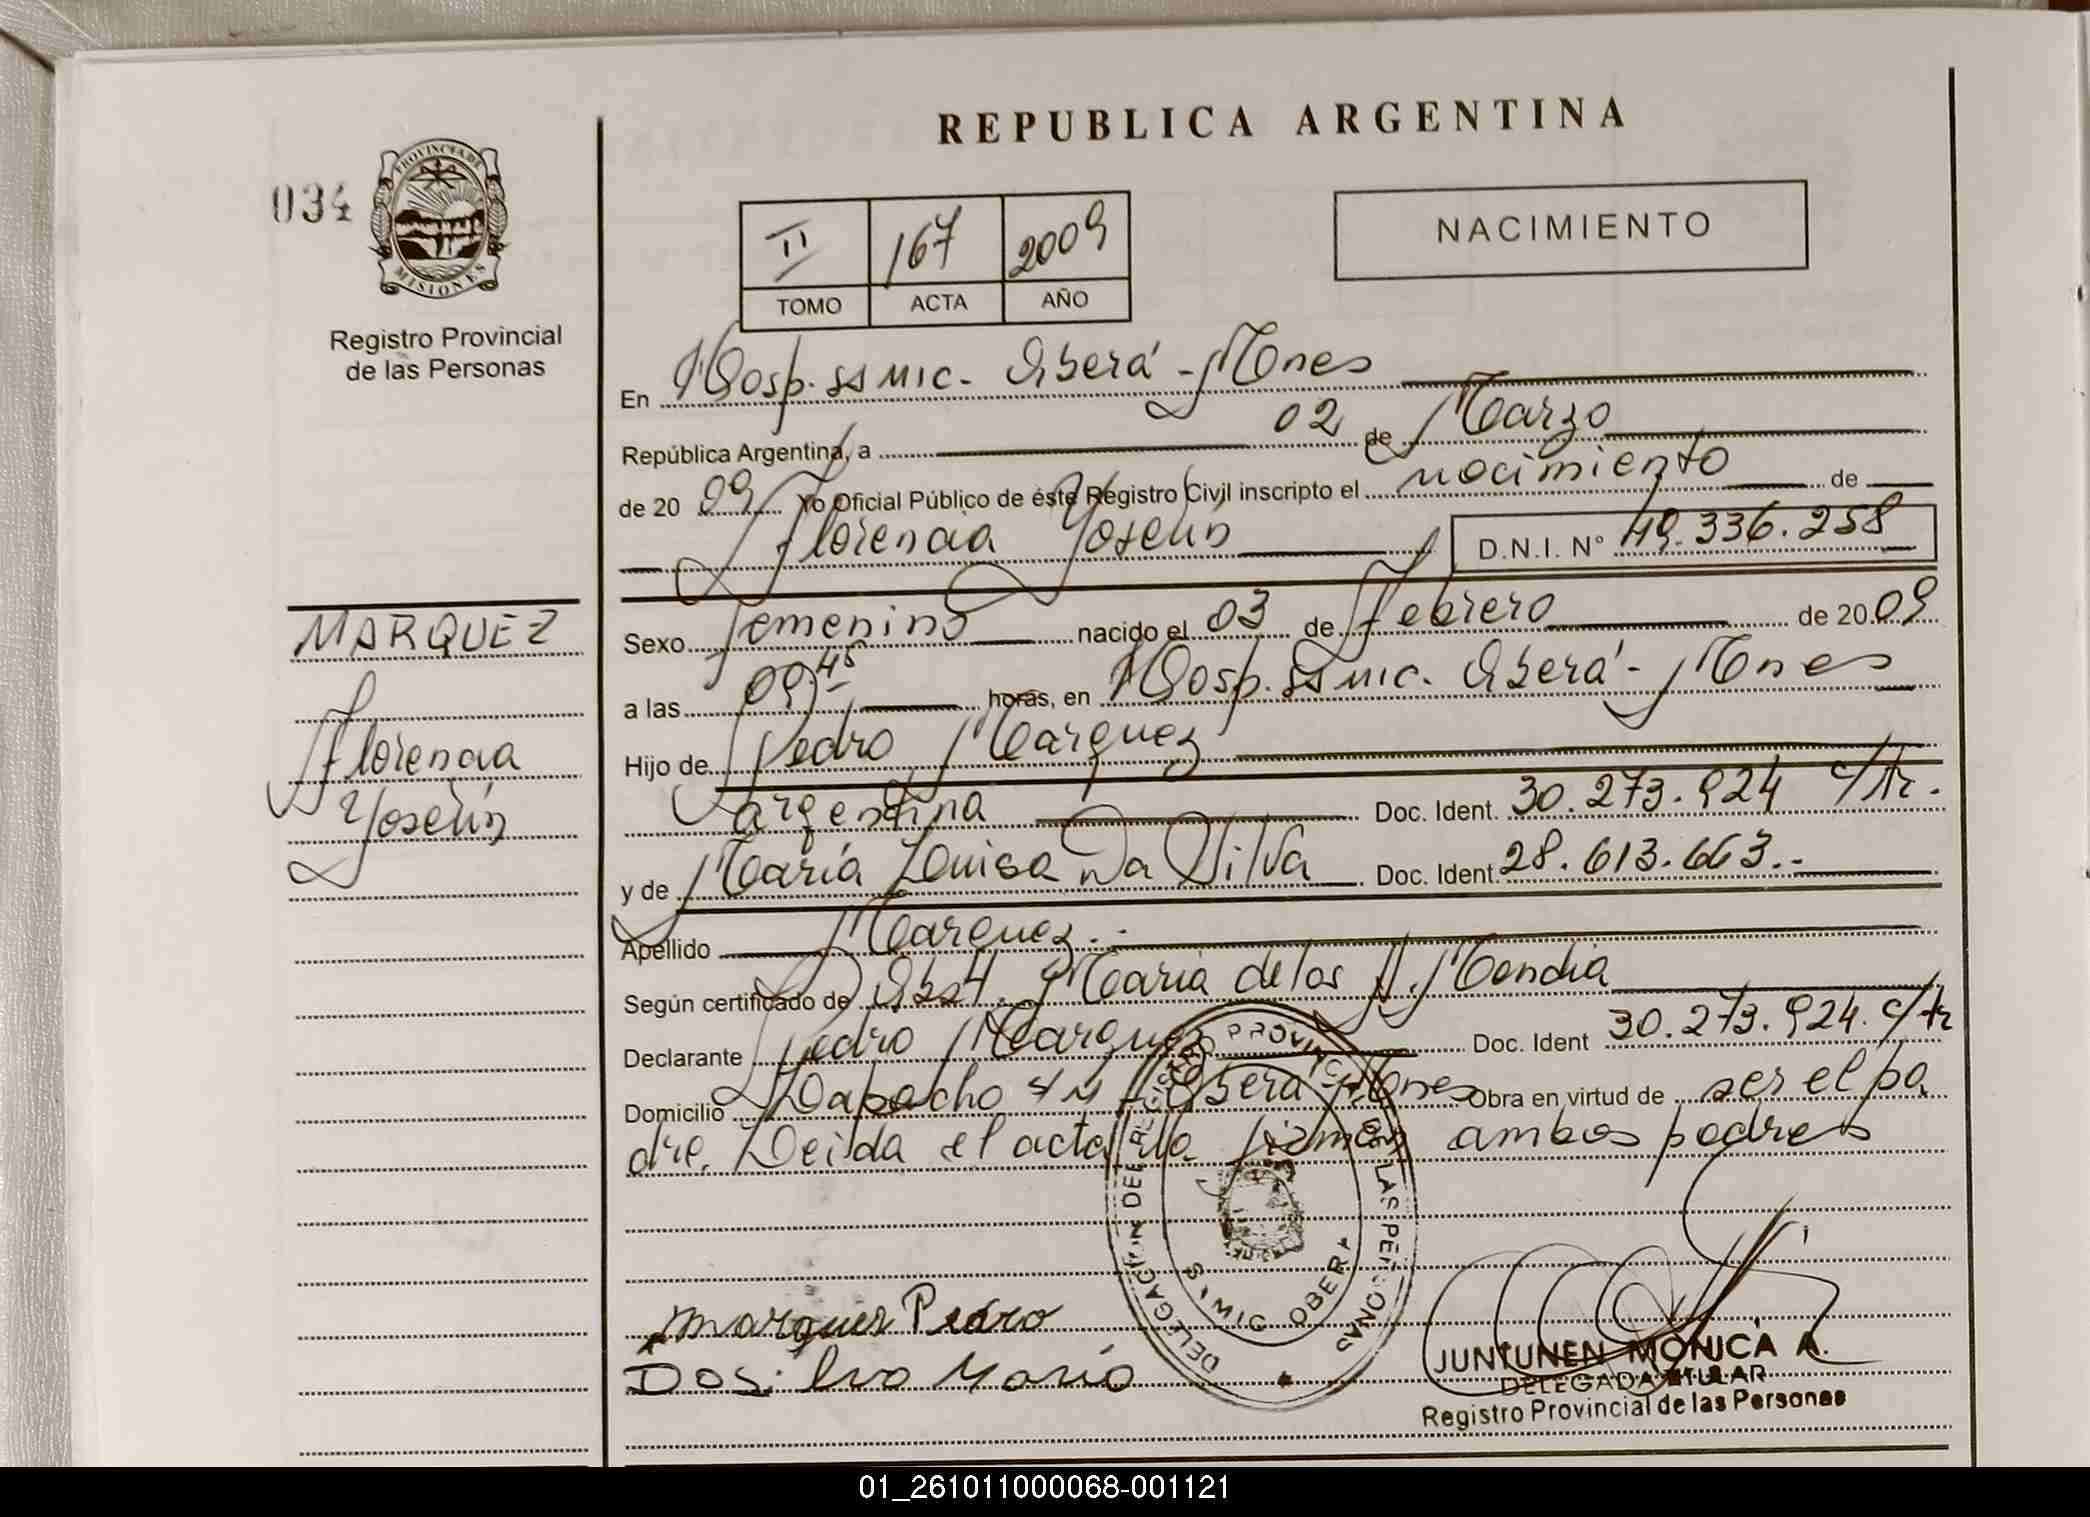 REPUBLICA ARGENTINA
034
PROVINCIA DE
MISIONES
Registro Provincial
de las Personas
II 167 2009
TOMO ACTA AÑO
NACIMIENTO
En Hosp. SSMIC. Oberá - Mnes
República Argentina, a 02 de Marzo
de 20 09 Yo Oficial Público de éste Registro Civil inscripto el nacimiento de
Florencia Yoselin D.N.I. N° 49.336.258
MARQUEZ
Florencia
Yoselin
Sexo femenino nacido el 03 de Febrero de 20 09
a las 09,45 horas, en Hosp. SSMIC. Oberá - Mnes
Hijo de Pedro Marquez
argentina Doc. Ident. 30.273.924 c/tr.
y de María Luisa Da Silva Doc. Ident. 28.613.663.-
Apellido Marquez.-
Según certificado de Obst. María de los A. Mendia
Declarante Pedro Marquez Doc. Ident 30.273.924. c/tr
Domicilio Lapacho S/N Oberá Mnes Obra en virtud de ser el pa
dre. Leida el acta la firman ambos padres
DELEGACION DEL REGISTRO PROVINCIAL DE LAS PERSONAS
SSMIC OBERA
Marquez Pedro
Dasilva Maria
JUNTUNEN MONICA A.
DELEGADA TITULAR
Registro Provincial de las Personas
01_261011000068-001121